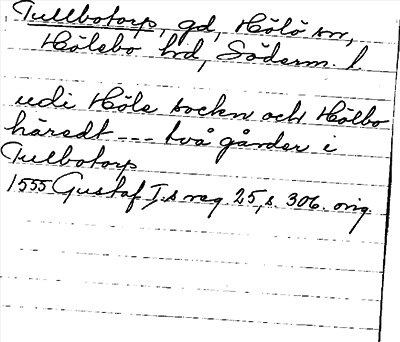 Tullbotorp, gd, Hölö sn,
Hölebo hd, Söderm. l.
udi Höle sockn och Hölbo
häredt --- två gårder i
Tulbotorp
1555 Gustaf I.s reg. 25, s. 306. orig